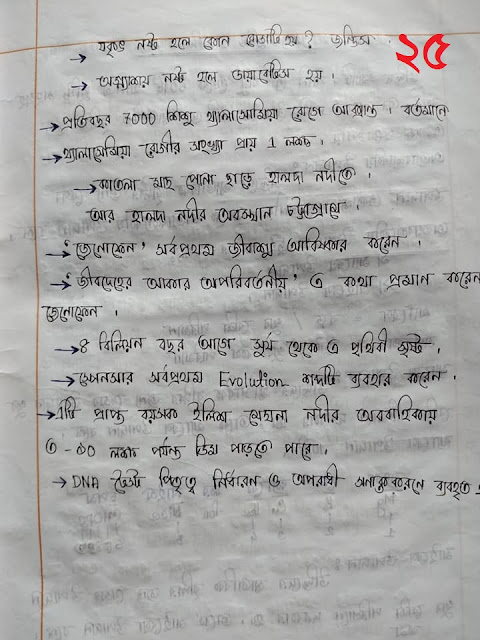 → যকৃৎ নষ্ট হলে কোন রোগটি হয়? জন্ডিস।
২৫
→ অগ্ন্যাশয় নষ্ট হলে ডায়াবেটিস হয়।
→ প্রতিবছর 7000 শিশু থ্যালাসেমিয়া রোগে আক্রান্ত। বর্তমানে
→ থ্যালাসেমিয়া রোগীর সংখ্যা প্রায় 1 লক্ষ।
→ কাতলা মাছ পোনা ছাড়ে হালদা নদীতে।
আর হালদা নদীর অবস্থান চট্টগ্রামে।
→ 'জেনোফেন' সর্বপ্রথম জীবাশ্ম আবিষ্কার করেন।
→ 'জীবদেহের আকার অপরিবর্তনীয়' এ কথা প্রমান করেন
জেনোফেন।
→ ৪ বিলিয়ন বছর আগে সূর্য থেকে এ পৃথিবী সৃষ্ট।
→ স্পেনসার সর্বপ্রথম Evolution শব্দটি ব্যবহার করেন।
→ প্রাপ্ত বয়স্ক ইলিশ মেঘনা নদীর অববাহিকায়
লক্ষ পর্যন্ত ডিম পাড়তে পারে।
→ DNA টেস্ট পিতৃত্ব নির্ধারণ ও অপরাধী সনাক্তকরনে ব্যবহৃত